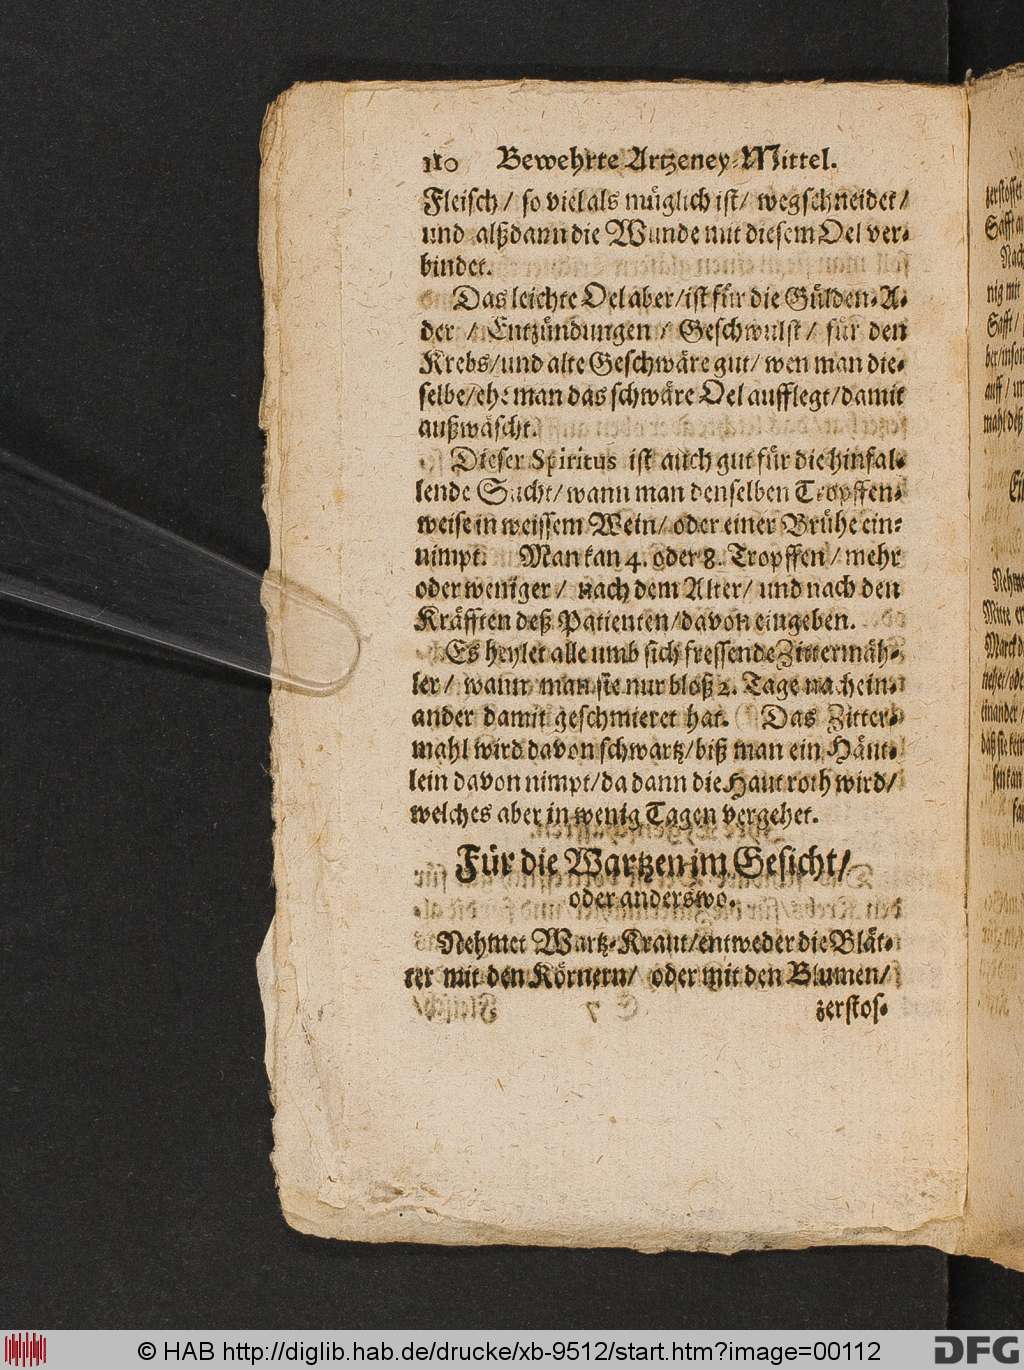 110 Bewehrte Artzeney-Mittel.
Fleisch / so viel als müglich ist / wegschneidet /
und alßdann die Wunde mit diesem Oel ver-
bindet.
Das leichte Oel aber / ist für die Gülden-A-
der / Entzündungen / Geschwulst / für den
Krebs / und alte Geschwäre gut / wen man die-
selbe / ehe man das schwäre Oel aufflegt / damit
außwäscht.
Dieser Spiritus ist auch gut für die hinfal-
lende Sucht / wann man denselben Tropffen-
weise in weissem Wein / oder einer Brühe ein-
nimpt. Man kan 4. oder 8. Tropffen / mehr
oder weniger / nach dem Alter / und nach den
Kräfften deß Patienten / davon eingeben.
Es heylet alle umb sich fressende Zittermäh-
ler / wann man sie nur bloß 2. Tage nach ein-
ander damit geschmieret hat. Das Zitter-
mahl wird davon schwartz / biß man ein Häut-
lein davon nimpt / da dann die Haut roth wird /
welches aber in wenig Tagen vergehet.
Für die Wartzen im Gesicht /
oder anderswo.
Nehmet Wartz-Kraut / entweder die Blät-
ter mit den Körnern / oder mit den Blumen /
zerstos-
zerstosset
Safft
Nach
nig mit
Safft /
auff /
mahl deß
Marck
einander /
© HAB http://diglib.hab.de/drucke/xb-9512/start.htm?image=00112
DFG